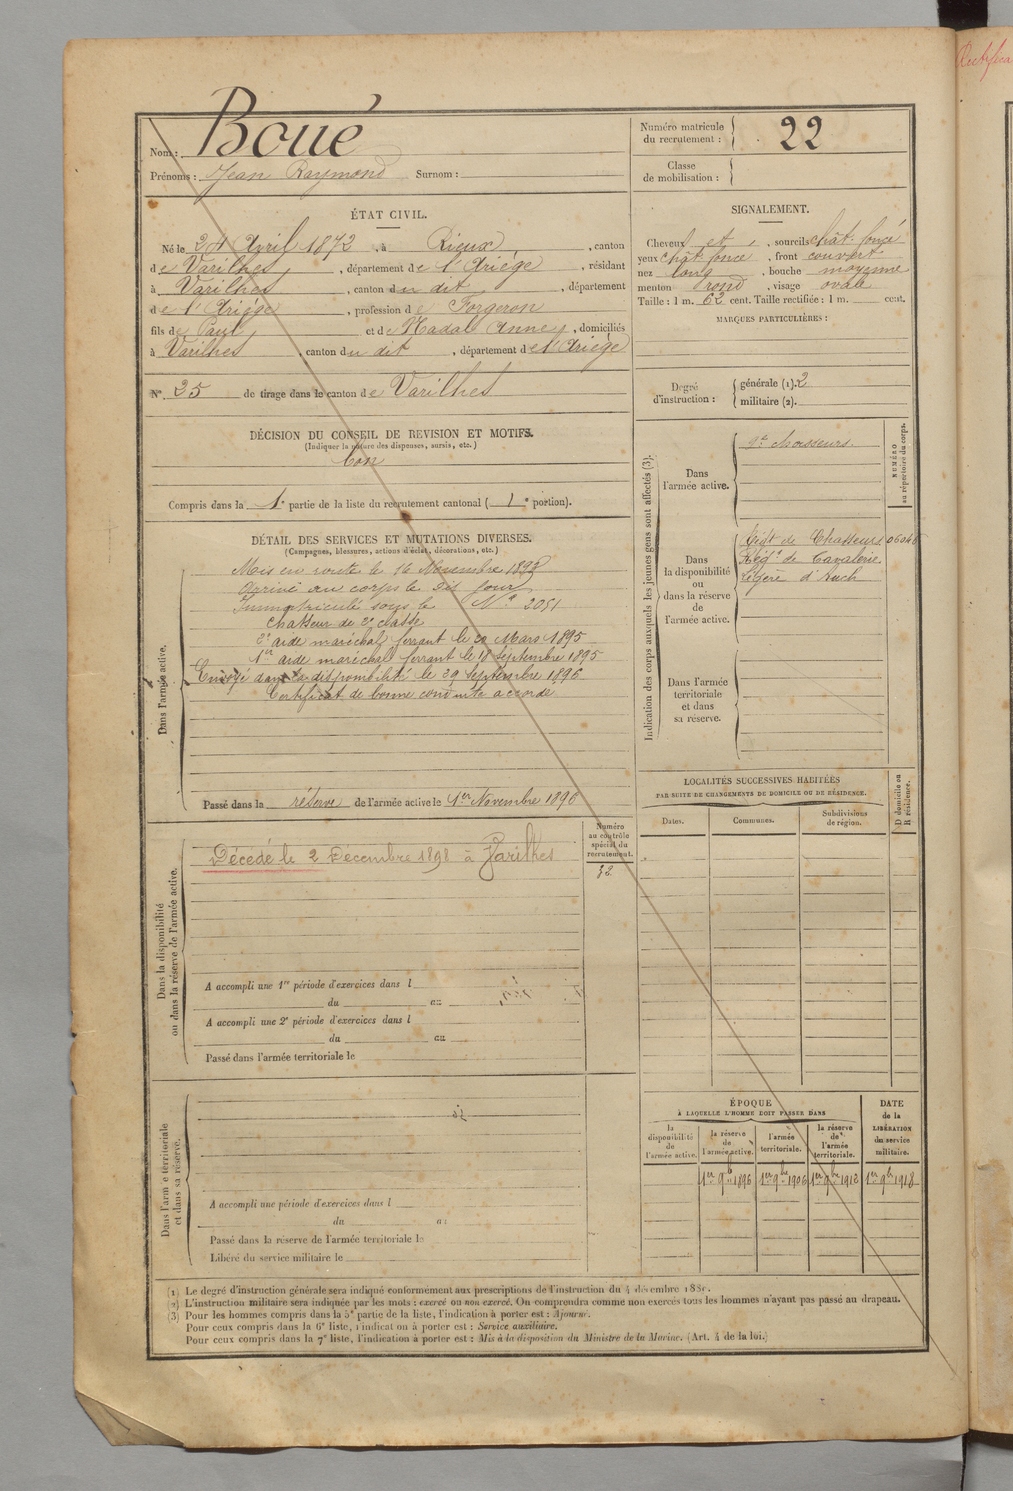 Rectifica
Nom : Boué
Prénoms : Jean Raymond Surnom :
Numéro matricule du recrutement : 22
Classe de mobilisation :
ÉTAT CIVIL.
Né le Avril 1872, à Rieux, canton
de Varilhes, département de l'Ariège, résidant
à Varilhes, canton du dit, département
de l'Ariège, profession de Forgeron
fils de Paul et de Nadal Anne, domiciliés
à Varilhes, canton du dit, département de l'Ariège
N° 25 de tirage dans le canton de Varilhes
DÉCISION DU CONSEIL DE REVISION ET MOTIFS.
(Indiquer la nature des dispenses, sursis, etc.)
bon
Compris dans la 1e partie de la liste du recrutement cantonal ( 1e portion).
SIGNALEMENT.
Cheveux et, sourcils chât. foncé
yeux chât foncé, front couvert
nez long, bouche moyenne
menton rond, visage ovale
Taille : 1 m. 62 cent. Taille rectifiée : 1 m. cent.
MARQUES PARTICULIÈRES :
Degré d'instruction :
générale (1). 2
militaire (2).
DÉTAIL DES SERVICES ET MUTATIONS DIVERSES.
(Campagnes, blessures, actions d'éclat, décorations, etc.)
Dans l'armée active.
Mis en route le 16 Novembre 1893
Arrivé au corps le dit jour
Immatriculé sous le N° 2051
chasseur de 2e classe
2e aide maréchal ferrant le 22 Mars 1895
1er aide maréchal ferrant le 18 Septembre 1895
Envoyé dans la disponibilité le 29 Septembre 1896
Certificat de bonne conduite accordé
Passé dans la réserve de l'armée active le 1er Novembre 1896
Indication des corps auxquels les jeunes gens sont affectés (3).
NUMÉRO au répertoire du corps.
Dans l'armée active.
9e chasseurs
Dans la disponibilité ou dans la réserve de l'armée active.
Régt de Chasseurs 06046
Régt de Cavalerie
légère d'Auch
Dans l'armée territoriale et dans sa réserve.
Dans la disponibilité ou dans la réserve de l'armée active.
Numéro au contrôle spécial du recrutement.
32
Décédé le 2 Décembre 1898 à Varilhes
A accompli une 1re période d'exercices dans l
du au
A accompli une 2e période d'exercices dans l
du au
Passé dans l'armée territoriale le
LOCALITÉS SUCCESSIVES HABITÉES
PAR SUITE DE CHANGEMENTS DE DOMICILE OU DE RÉSIDENCE.
D domicile ou R résidence.
Dates. Communes. Subdivisions de région.
Dans l'armée territoriale et dans sa réserve.
A accompli une période d'exercices dans l
du au
Passé dans la réserve de l'armée territoriale le
Libéré du service militaire le
ÉPOQUE
À LAQUELLE L'HOMME DOIT PASSER DANS
DATE de la LIBÉRATION du service militaire.
la disponibilité de l'armée active.
la réserve de l'armée active.
l'armée territoriale.
la réserve de l'armée territoriale.
1er 9bre 1896 1er 9bre 1906 1er 9bre 1912 1er 9bre 1918
(1) Le degré d'instruction générale sera indiqué conformément aux prescriptions de l'instruction du 4 décembre 1889.
(2) L'instruction militaire sera indiquée par les mots : exercé ou non exercé. On comprendra comme non exercés tous les hommes n'ayant pas passé au drapeau.
(3) Pour les hommes compris dans la 5e partie de la liste, l'indication à porter est : Ajourné.
Pour ceux compris dans la 6e liste, l'indication à porter est : Service auxiliaire.
Pour ceux compris dans la 7e liste, l'indication à porter est : Mis à la disposition du Ministre de la Marine. (Art. 4 de la loi.)